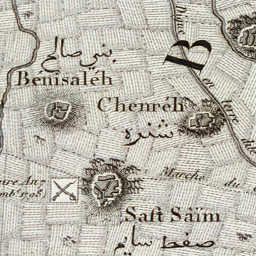 بني صالح
Benisaléh
Chenréh
شنره
B
en
Marche du
Saft Säïm
صفط سايم